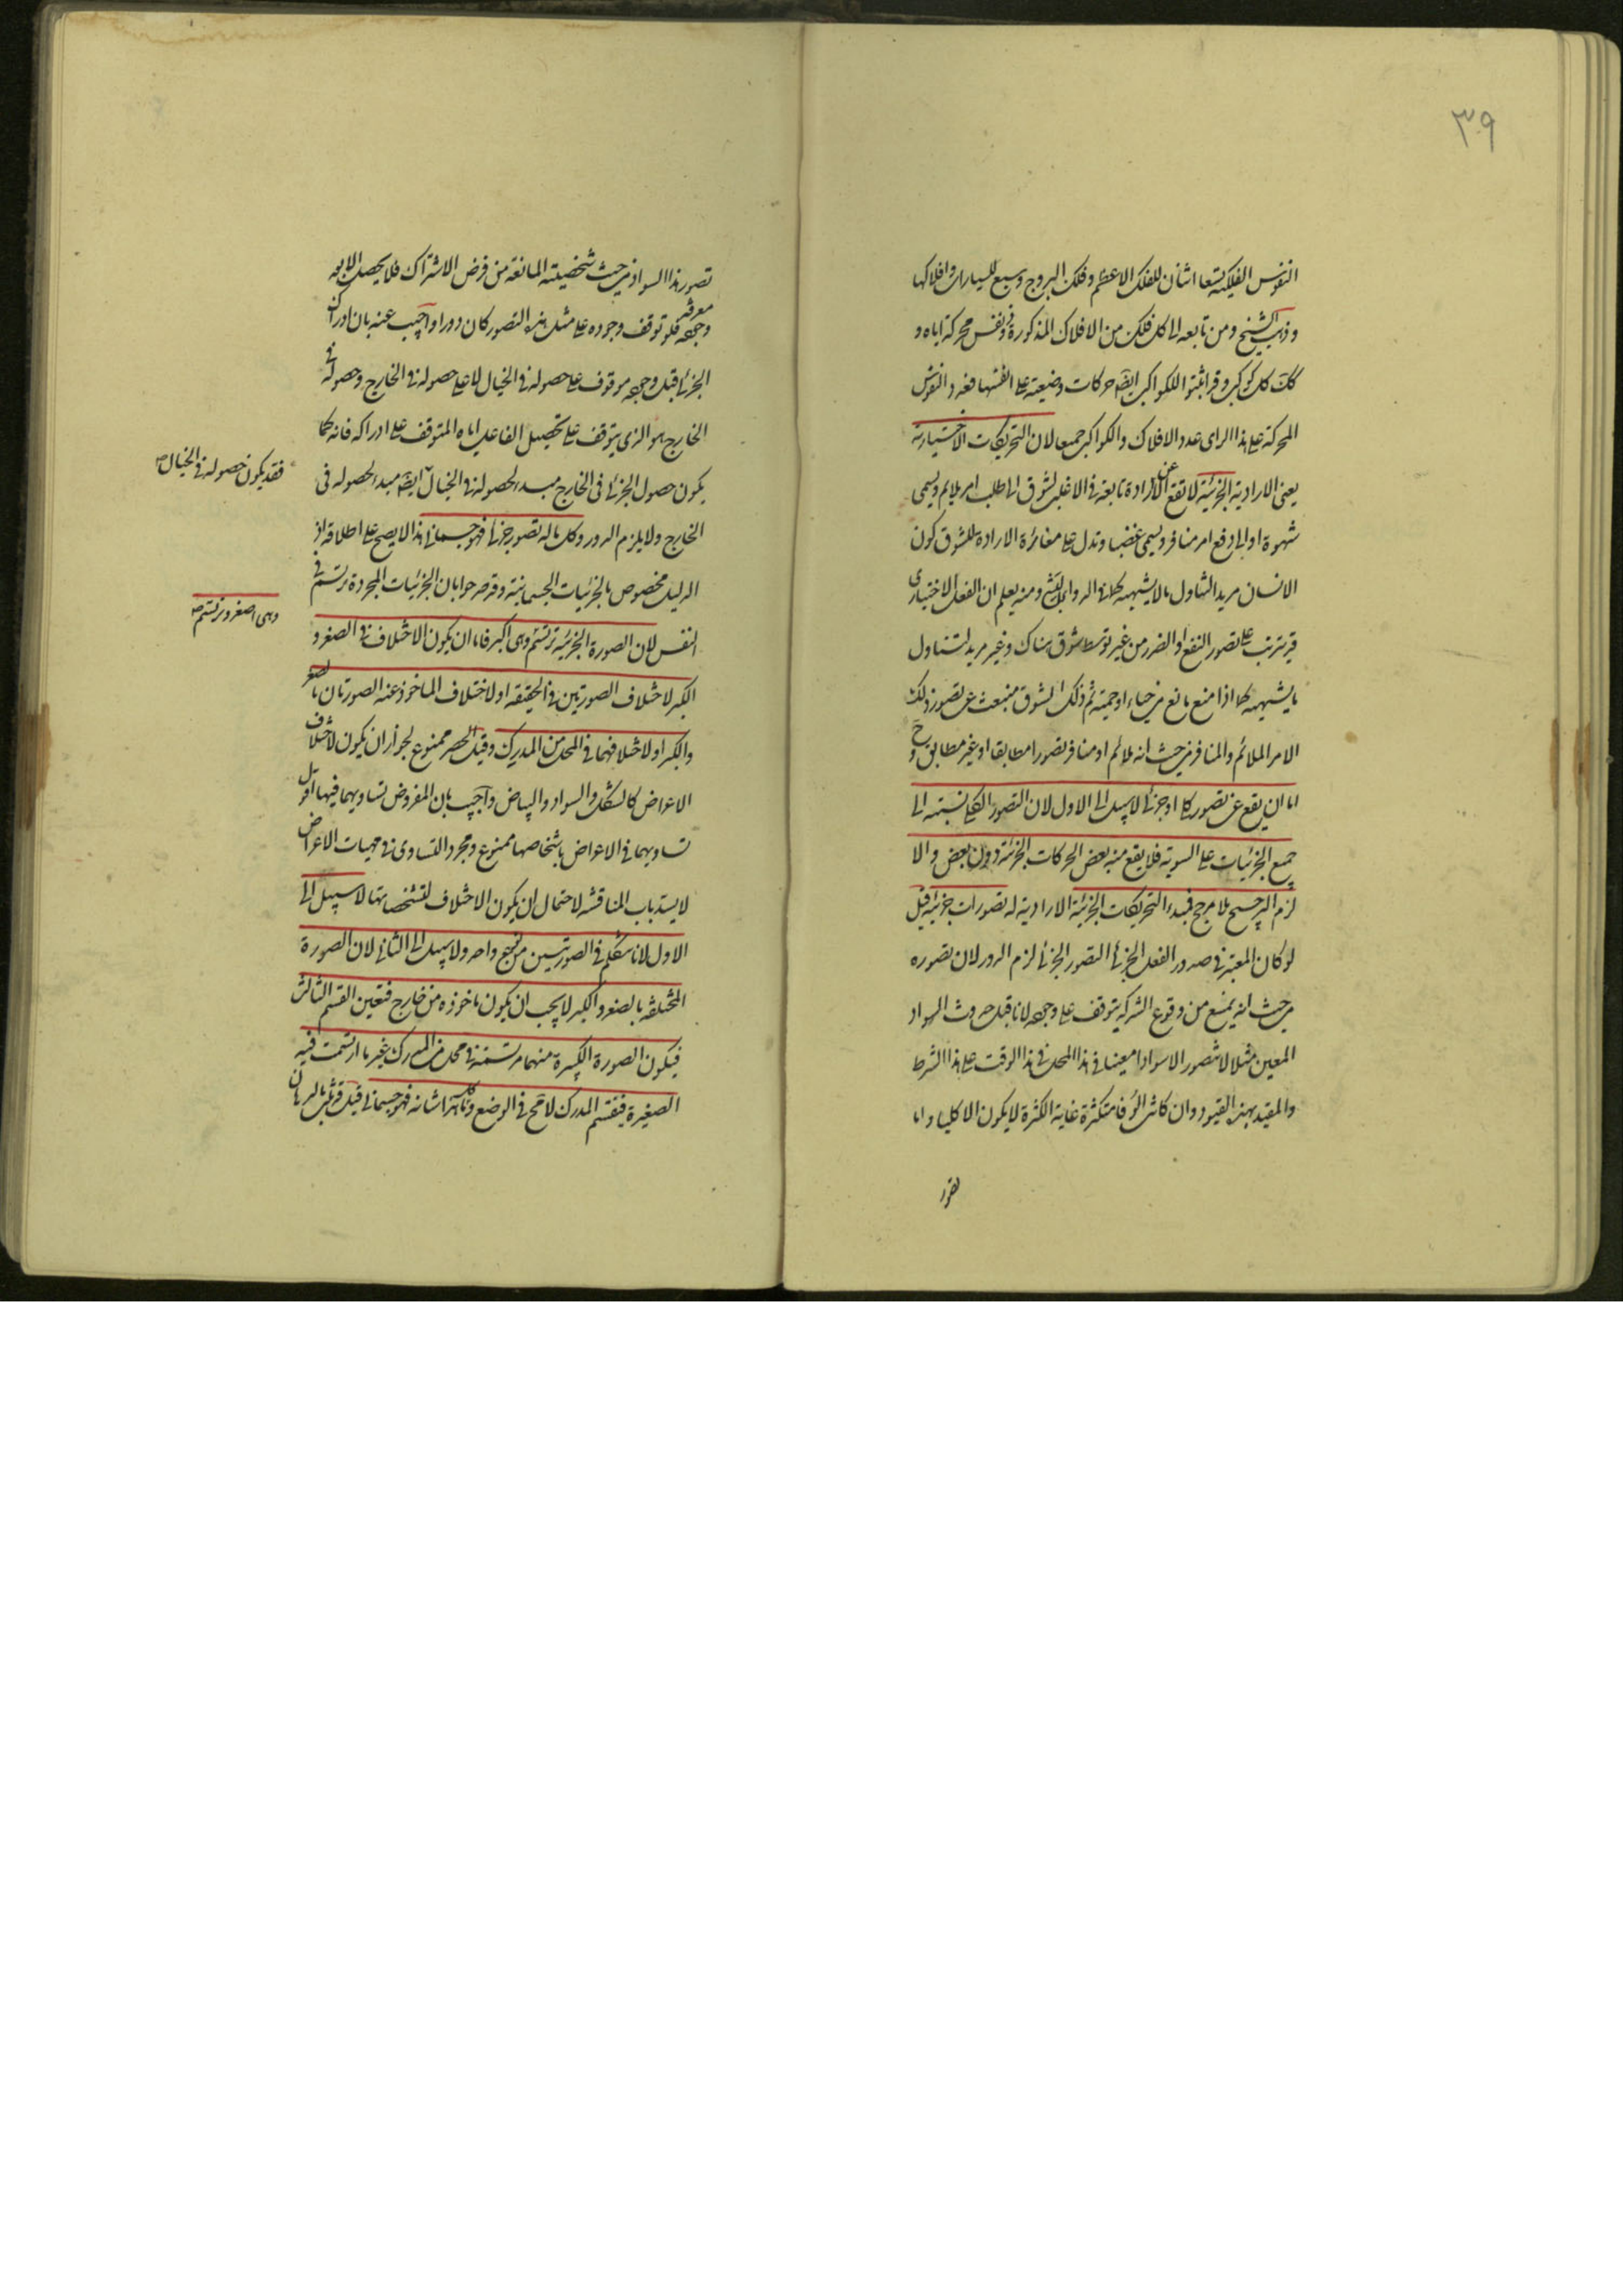 ٣٩
النفوس الفلكية تسعا اثنان للفلك الاعظم وفلك البروج وسبع للسيارات وافلاكها
وذهب الشيخ ومن تابعه الى كل فلك من الافلاك المذكورة ذو نفس محركة اياه و
كك كل كوكب وقد اثبتوا للكواكب ايضا حركات وضعية على انفسها فعدد النفوس
المحركة على هذا الراى عدد الافلاك والكواكب جميعا لان التحريكات الاختيارية
يعنى الارادية الجزئية لا تقع الا عن ارادة تابعة فى الاغلب لشوق الى طلب امر ملايم ويسمى
شهوة او الى دفع امر منافر ويسمى غضبا وتدل على مغائرة الارادة للشوق كون
الانسان مريد التناول ما لا يشتهيه كما فى الدواء البشع ومنه يعلم ان الفعل الاختيارى
قد يترتب على تصور النفع او الضرر من غير توسط شوق هناك وغير مريد لتناول
ما يشتهيه كما اذا منع مانع من حياء او حمية ثم ذلك الشوق منبعث عن تصور ذلك
الامر الملائم والمنافر من حيث انه ملائم او منافر تصورا مطابقا او غير مطابق وح
اما ان يقع عن تصور كلى او جزئى لا سبيل الى الاول لان التصور الكلى نسبته الى
جميع الجزئيات على السوية فلا يقع منه بعض الحركات الجزئية دون بعض والا
لزم الترجيح بلا مرجح فمبدء التحريكات الجزئية الارادية له تصورات جزئية قيل
لو كان المعتبر فى صدور الفعل الجزئى التصور الجزئى لزم الدور لان تصوره
من حيث انه يمنع من وقوع الشركة يتوقف على وجوده لانا قبل حدوث السواد
المعين مثلا لا نتصور الا سوادا معينا فى هذا المحل فى هذا الوقت على هذا الشرط
والمقيد بهذه القيود وان كانت الوفا متكثرة غاية الكثرة لا يكون الا كليا واما
تصور
تصور هذا السواد من حيث شخصيته المانعة من فرض الاشتراك فلا يحصل الا بعد
وجوده فلو توقف وجوده على مثل هذا التصور كان دورا واجيب عنه بان ادراك
الجزئى قبل وجوده موقوف على حصوله فى الخيال لا على حصوله فى الخارج وحصوله فى
الخارج هو الذى يتوقف على تحصيل الفاعل اياه المتوقف على ادراكه فانه كما
يكون حصول الجزئى فى الخارج مبدء لحصوله فى الخيال ايضا مبدء لحصوله فى
فقد يكون حصوله فى الخيال صح
الخارج ولا يلزم الدور وكل ما له تصور جزئى فهو جسمانى هذا لا يصح على اطلاقه اذ
الدليل مخصوص بالجزئيات الجسمانية وقد صرحوا بان الجزئيات المجردة ترتسم فى
النفس لان الصورة الجزئية ترتسم وهى اكبر فاما ان يكون الاختلاف فى الصغر و
وهى اصغر وترتسم صح
الكبر لاختلاف الصورتين فى الحقيقة او لاختلاف الماخوذ عنه الصورتان بالصغر
والكبر او لاختلافهما فى المحل من المدرك وقيل الحصر ممنوع لجواز ان يكون لاختلاف
الاعراض كالشكل والسواد والبياض واجيب بان المفروض تساويهما فيها اقول
تساويهما فى الاعراض باشخاصها ممنوع ومجرد التساوى فى مهيات الاعراض
لا يسد باب المناقشة لاحتمال ان يكون الاختلاف لتشخصاتها لا سبيل الى
الاول لانا نتكلم فى الصورتين من نوع واحد ولا سبيل الى الثانى لان الصورة
المختلفة بالصغر والكبر لا يجب ان يكون ماخوذة من خارج فتعين القسم الثالث
فيكون الصورة الكبيرة منهما مرتسمة فى محل من المدرك غير ما ارتسمت فيه
الصغيرة فينقسم المدرك لا مح فى الوضع وكل ما هذا شانه فهو جسمانى قيل قد ثبت بالبرهان